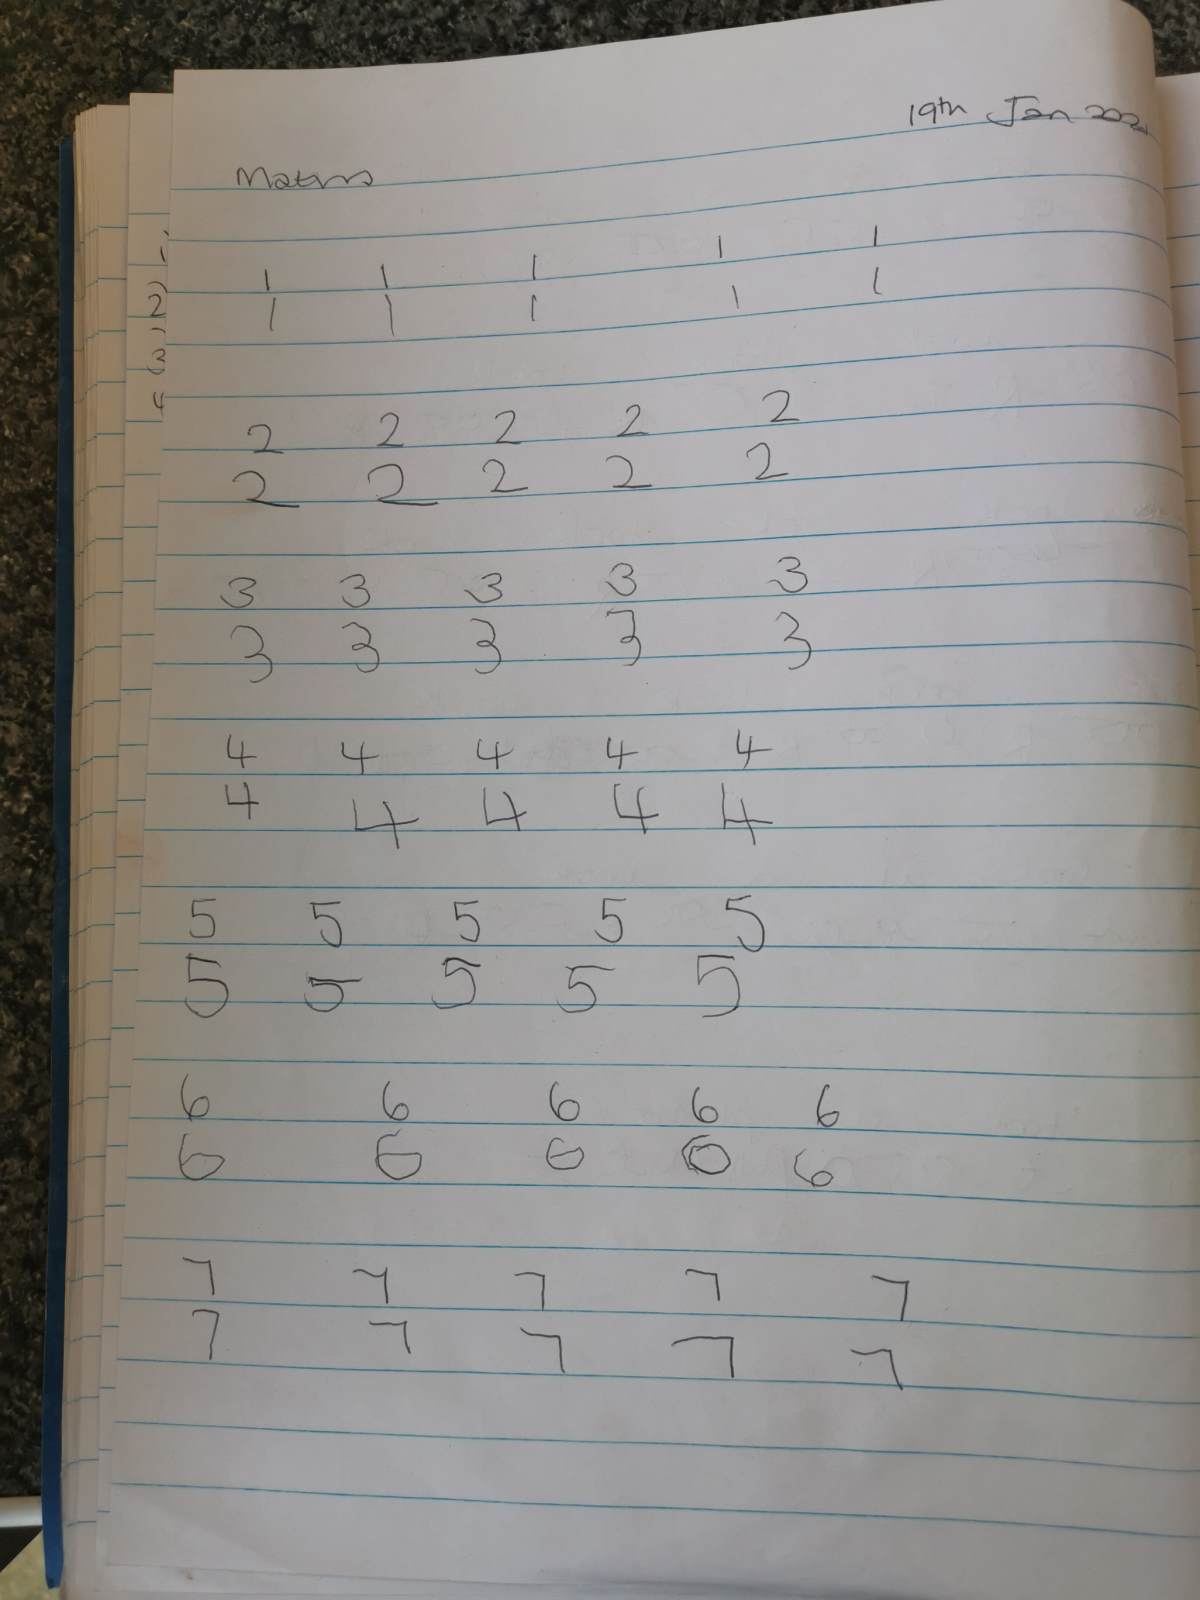 19th Jan 202
Maths
1 1 1 1 1
1 1 1 1 1
2 2 2 2 2
2 2 2 2 2
3 3 3 3 3
3 3 3 3 3
4 4 4 4 4
4 4 4 4 4
5 5 5 5 5
5 5 5 5 5
6 6 6 6 6
6 6 6 6 6
7 7 7 7 7
7 7 7 7 7
2)
3
4